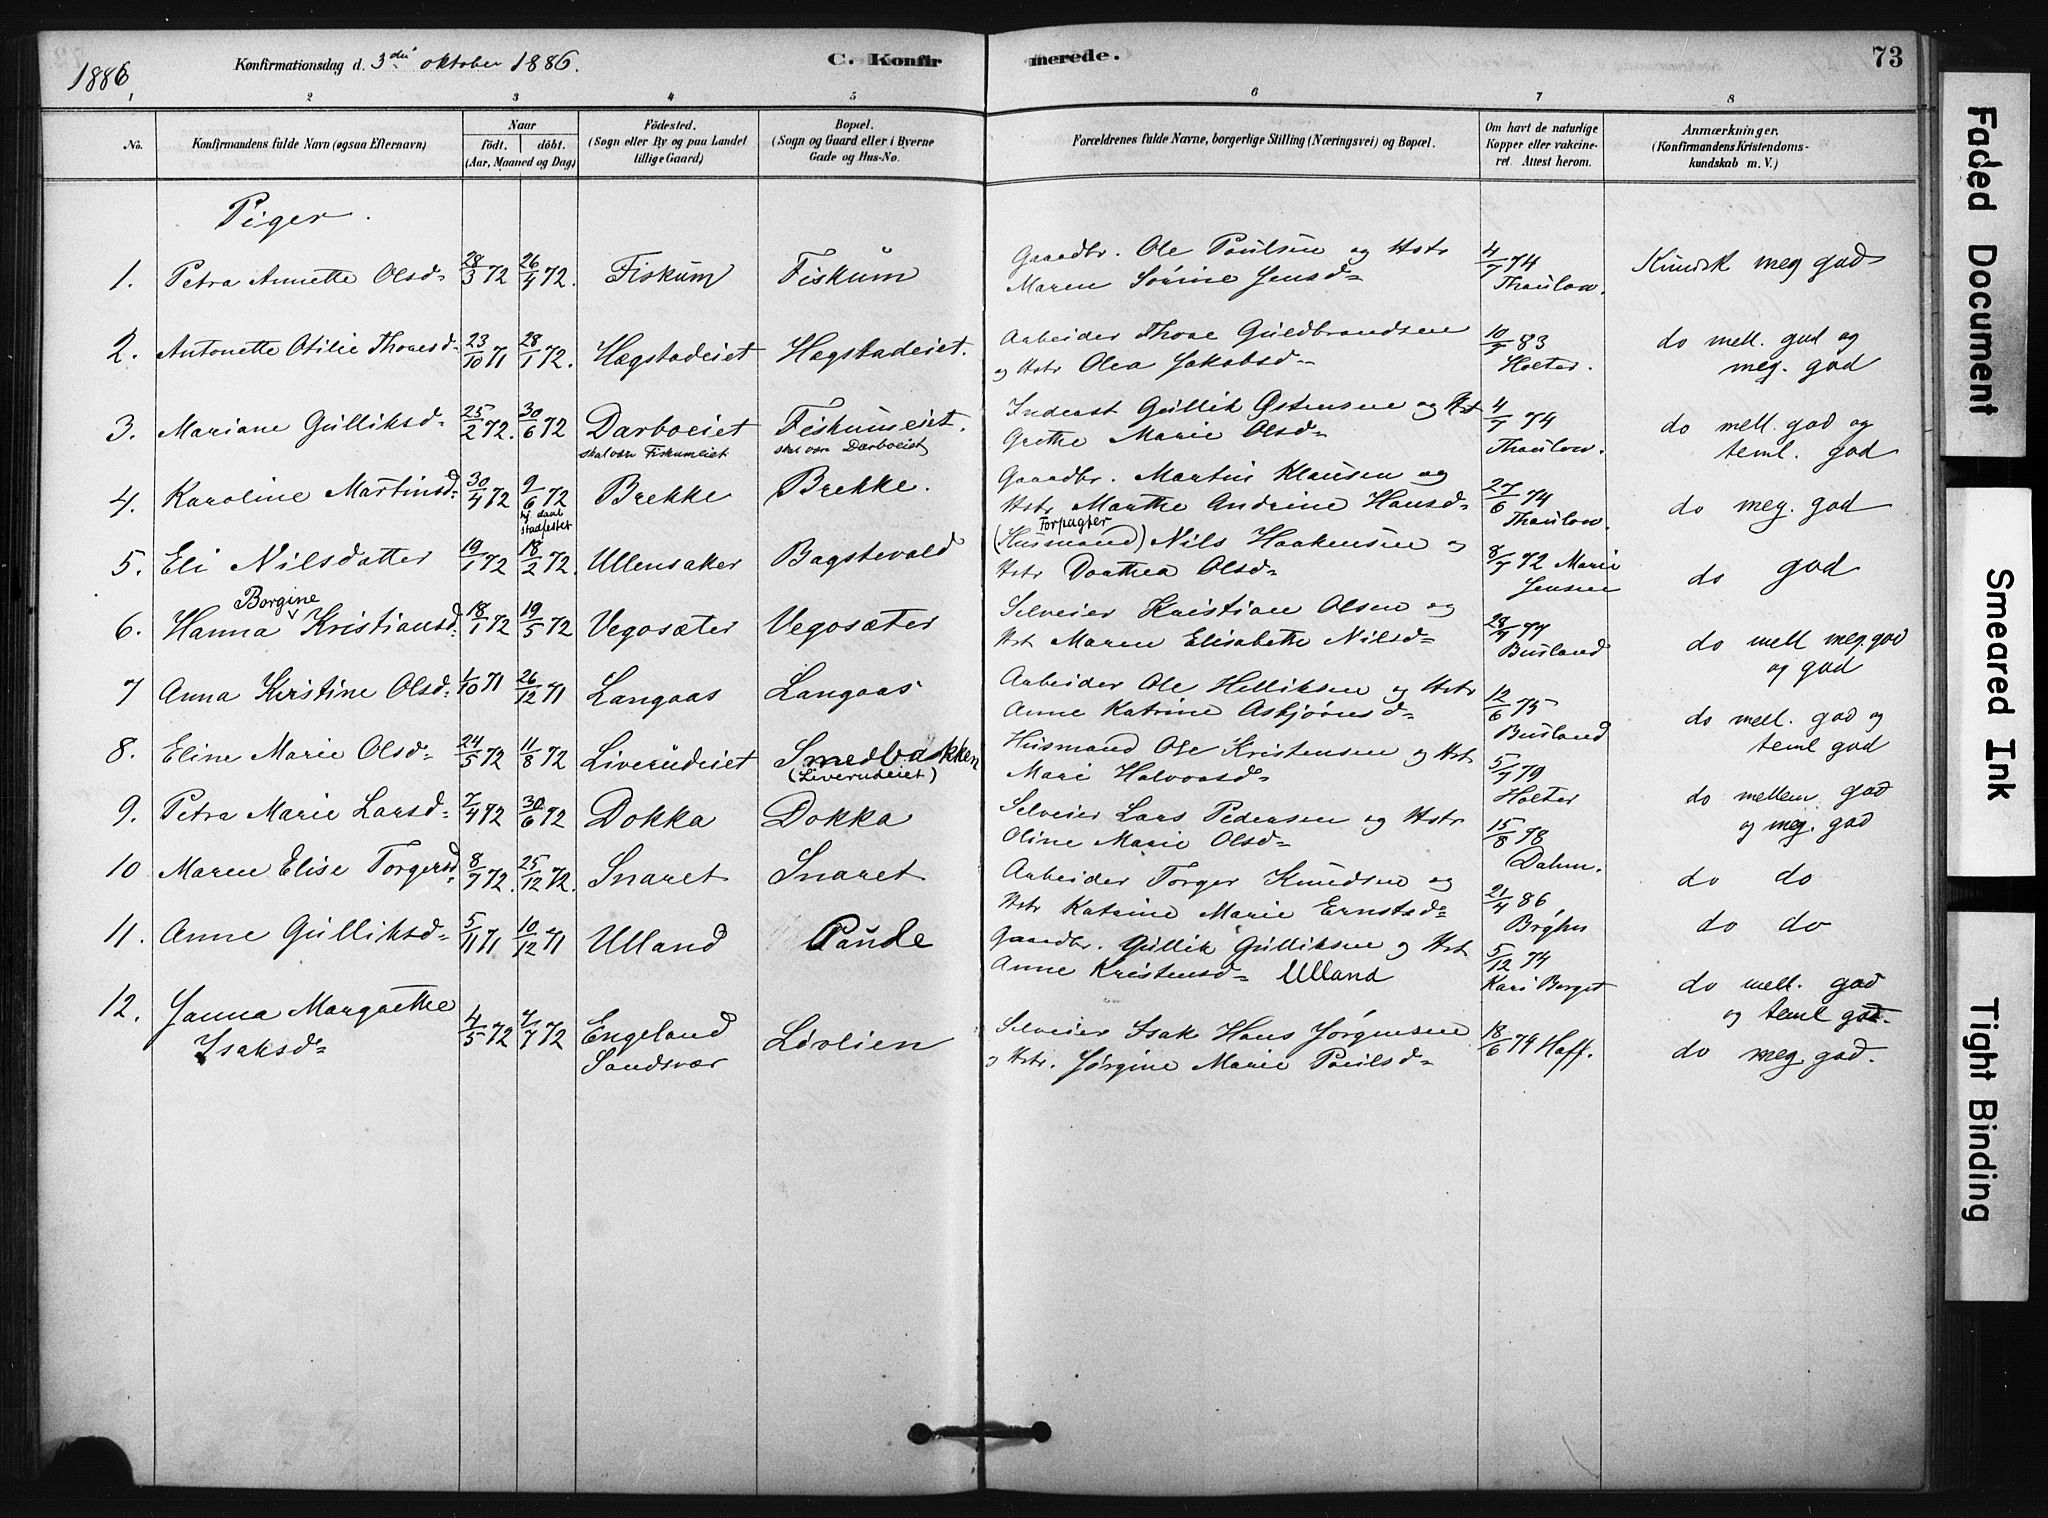 1886
Konfirmationsdag d. 3die oktober 1886.
C. Konfir merede.
73
1 2 3 4 5 6 7 8
No.
Konfirmandens fulde Navn (ogsaa Efternavn)
Naar
födt. döbt.
(Aar, Maaned og Dag)
Födested.
(Sogn eller By og paa Landet
tillige Gaard)
Bopæl.
(Sogn og Gaard eller i Byerne
Gade og Hus-No.
Forældrenes fulde Navne, borgerlige Stilling (Næringsvei) og Bopæl.
Om havt de naturlige
Kopper eller vakcine-
ret. Attest herom.
Anmærkninger.
(Konfirmandens Kristendoms-
kundskab m. V.)
Piger.
1. Petra Annette Olsd. 28/3 72 26/4 72. Fiskum Fiskum Gaardbr. Ole Paulsen og Hstr Maren Sørine Jensd. 4/7 74 Thaulow. Kundsk meg god
2. Antonette Otilie Thoresd. 23/10 71 28/1 72. Hægstadeiet Hægstadeiet. Arbeider Thore Guldbrandsen og Hstr Olea Jakobsd. 10/7 83 Holter. do mell. god og meg. god
3. Mariane Gulliksd. 25/2 72. 30/6 72 Darboeiet skal være Fiskumeiet Fiskumeiet. skal være Darboeiet Inderst Gullik Østensen og Hst Grethe Marie Olsd. 4/7 74 Thaulow. do mell. god og teml. god
4. Karoline Martinsd. 30/4 72 9/6 72 hj daab stadfestet Brekke Brekke. Gaardbr. Martin Klausen og Hstr Marthe Andrine Hansd. 27/6 74 Thaulow. do meg. god
5. Eli Nilsdatter 19/1 72 18/2 72. Ullensaker Bagstevold (Husmand) Forpagter Nils Haakensen og Hstr Dorthea Olsd. 8/7 72 Marie Jensen do god
6. Hanna Borgine Kristiansd. 18/1 72 19/5 72 Vegosæter Vegosæter Selveier Kristian Olsen og Hst Maren Elisabethe Nilsd. 28/7 77 Busland do mell meg. god og god
7 Anna Kristine Olsd. 1/10 71 26/12 71 Langaas Langaas Arbeider Ole Helliksen og Hstr Anne Katrine Asbjørnsd. 12/6 75 Busland do mell. god og teml god
8. Eline Marie Olsd. 24/5 72 11/8 72 Liverudeiet Smedbakken (Liverudeiet) Husmand Ole Kristensen og Hst Mari Halvorsd. 5/7 79 Holter do mellem god og meg. god
9. Petra Marie Larsd. 7/4 72 30/6 72 Dokka Dokka Selveier Lars Pedersen og Hstr Oline Marie Olsd. 15/8 78 Dahm. do do
10 Maren Elise Torgersd. 8/7 72. 25/12 72. Snaret Snaret Arbeider Torger Knudsen og Hstr Katrine Marie Ernstsd. 21/4 86, do do
11. Anne Gulliksd. 5/11 71 10/12 71 Ulland Paule Gaardbr. Gullik Gulliksen og Hst Anne Kristensd. Ulland 5/12 74 Kari Borget do mell. god og teml god.
12. Janna Margrethe Isaksd. 4/5 72 7/7 72 Engeland Sandsvær Livlien Selveier Isak Hans Jørgensen og Hstr. Jørgine Marie Paulsd. 18/6 79 Haff. do meg god.
Faded Document
Smeared Ink
Tight Binding